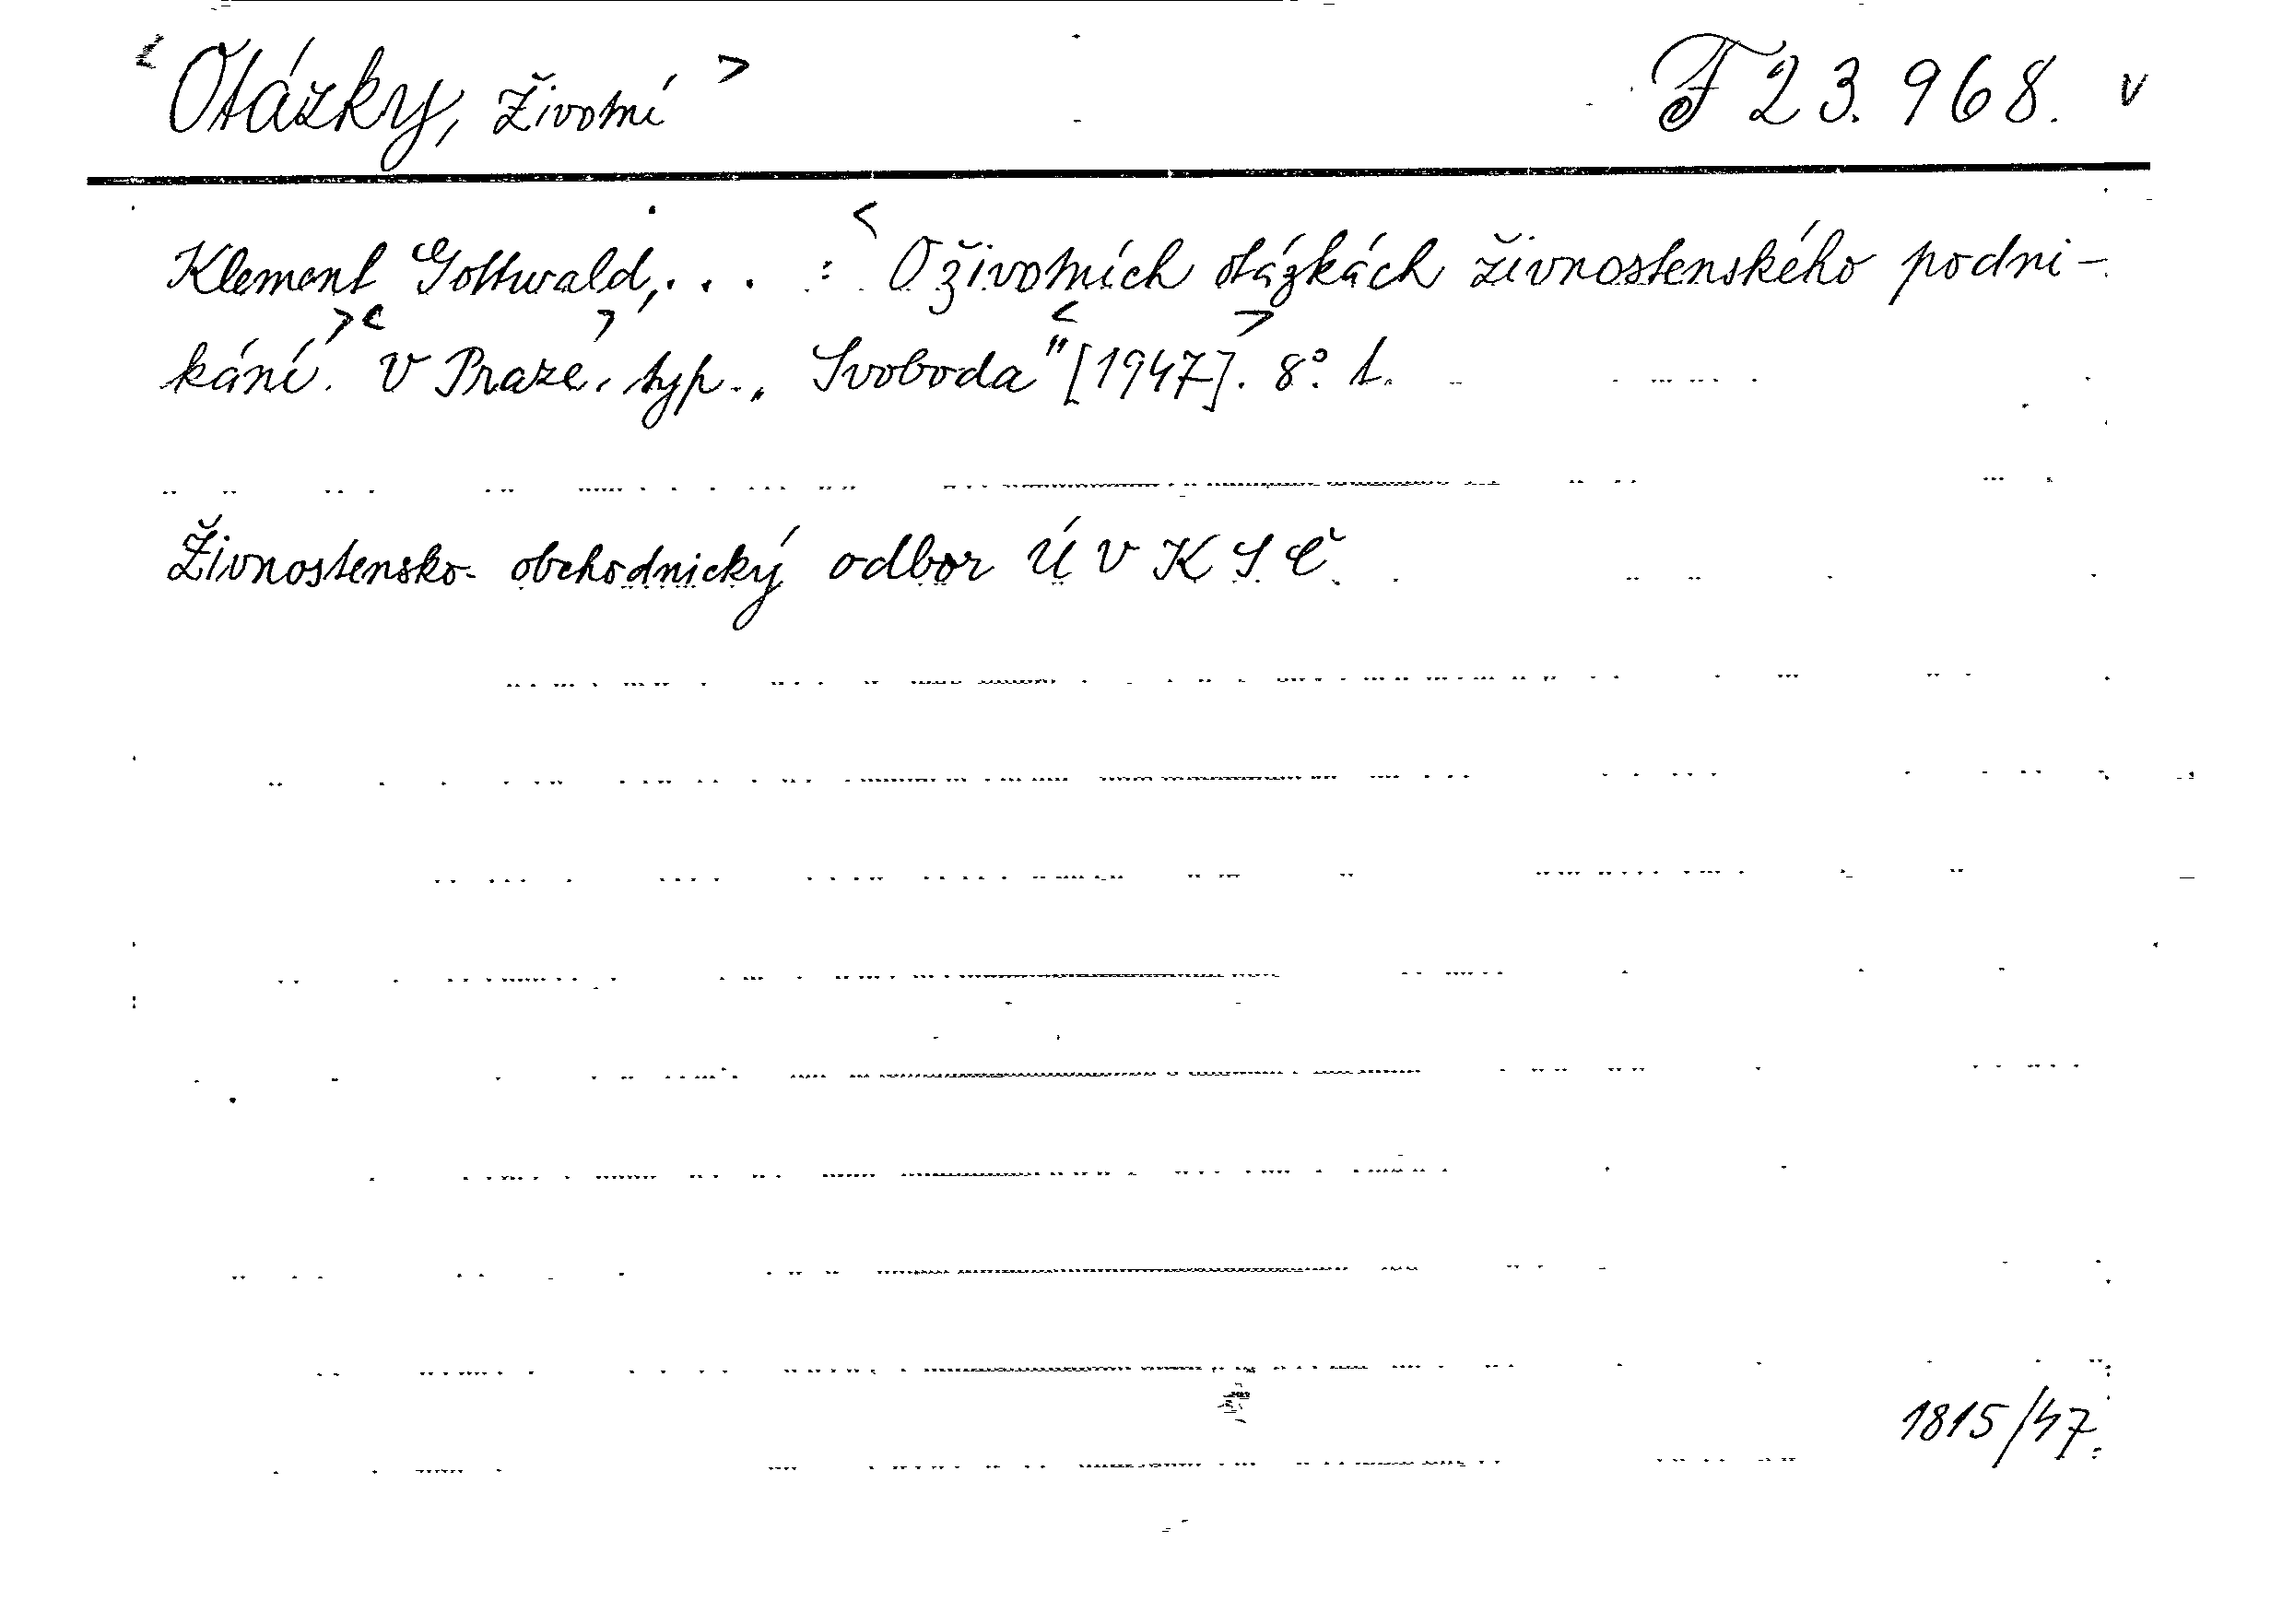 <Otázky, životní> F 23.968. v
Klement Gottwald, . . . : <O životních otázkách živnostenského podni-
kání.> <V Praze,> typ. „Svoboda" <[1947]>. 8°. 1.
Živnostensko-obchodnický odbor ÚV KSČ.
1815/47.